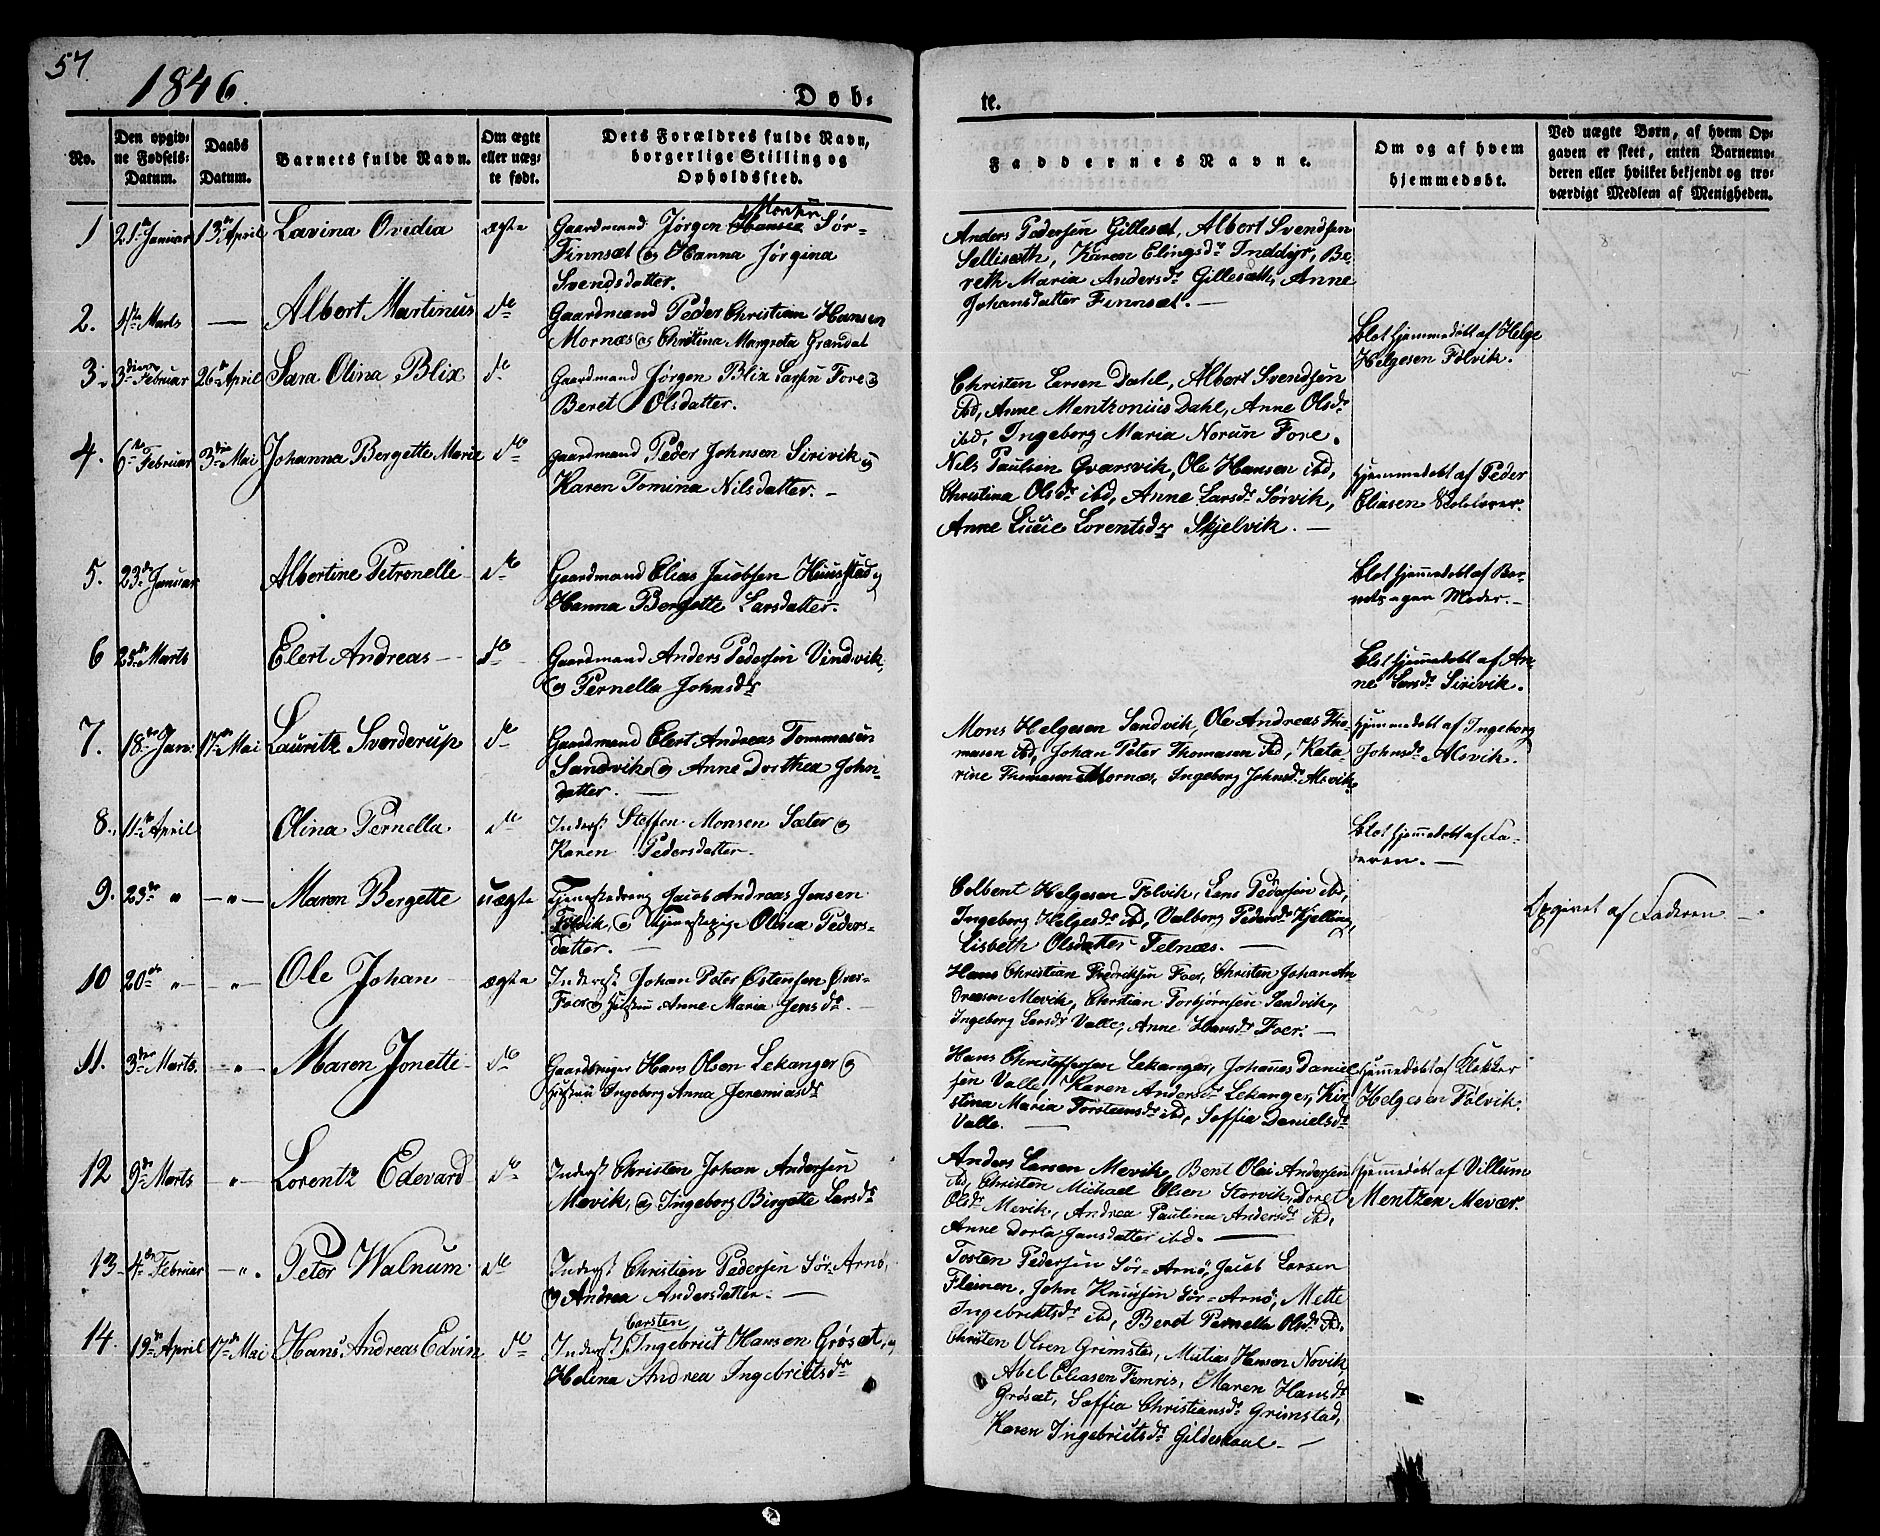 57.
1846.
Døb-
te.
No.
Den opgiv-
ne Fødsels-
Datum.
Daabs
Datum.
Barnets fulde Navn.
Om ægte
eller uæg-
te født.
Dets Forældres fulde Navn,
borgerlige Stilling og
Opholdssted.
Faddernes Navne.
Om og af hvem
hjemmedøbt.
Ved uægte Børn, af hvem Op-
gaven er skeet, enten Barnemo-
deren eller hvilket bekjendt og tro-
værdigt Medlem af Menigheden.
1 21de Januar 13de April Lavina Ovidia ægte
Gaardmand Jørgen Sør-
Finnsæt og Hanna Jørgina
Svendsdatter.
Anders Pedersen Gillesæt, Albert Svendsen
Sellisæth, Karen Elingsdr Inddyr, Be-
reth Maria Andersdr Gillesætt, Anne
Johansdatter Finnsæt. —
2. 4de Marts — Albert Martinus do
Gaardmand Peder Christian Hansen
Mornæs og Christina Margreta Grøndal
Blot hjemmedøbt af Helge
Helgesen Følvik.
3. 3die Februar 26de April Sara Olina Blix do
Gaardmand Jørgen Blix Larsen Fore og
Beret Olsdatter.
Christen Larsen Dahl, Albert Svendsen
ibd, Anne Mentzoniusdahl, Anne Olsdr
ibd, Ingeborg Maria Norun Fore.
4. 6te Februar 3die Mai Johanna Bergette Marie do
Gaardmand Peder Johnsen Sirivik og
Karen Tomina Nilsdatter. —
Nils Paulsen Qvarsvik, Ole Hansen ibd,
Christina Olsdr ibd, Anne Larsdr Sørvik,
Anne Lucie Lorentsdr Skjelvik. —
Hjemmedøbt af Peder
Eliasen Skolelærer.
5. 23de Januar Albertine Petronelle do
Gaardmand Elias Jacobsen Huusstad og
Hanna Bergette Larsdatter.
Blot hjemmedøbt af Bar-
nets egen Moder. —
6 23de Marts Elert Andreas — do
Gaardmand Anders Pedersen Vindvik,
og Pernella Johnsdr
Blot hjemmedøbt af An-
ne Larsdr Sirivik.
7. 18de Jan: 17de Mai Lauritz Sverderup do
Gaardmand Elert Andreas Tommasen
Sandvik og Anne Dorthea John-
datter. —
Mons Helgesen Sandvik, Ole Andreas Tho-
masen ibd, Johan Peter Thomasen ibd, Kata-
rine Thomasen Mornæs, Ingeborg Johnsdr Alsvik.
Hjemmedøbt af Ingeborg
Johnsdr Alsvik.
8. 11te April Olina Pernella do
Inderst Steffen Monsen Sæter og
Karen Pedersdatter.
Blot hjemmedøbt af Fa-
deren. —
9. 23de " —"— Maren Bergette uægte
Tjenestedreng Jacob Andreas Jensen
Følvik, og Tjenestepige Olina Peders-
datter. —
Colbent Helgesen Følvik, Lens Pedersen ibd,
Ingeborg Helgesdr ibd, Valborg Pedersdr Kjelling,
Lisbeth Olsdatter Felnæs. —
Opgivet af Faderen —.
10 20de "— —"— Ole Johan ægte
Inderst Johan Peter Østensen Øvre-
Foer og Hustru Anne Maria Jensdr. —
Hans Christian Fredriksen Foer, Christen Johan An-
dreasen Mevik, Christian Torbjørnsen Sandvik,
Ingeborg Larsdr Valle, Anne Hansdr Foer. —
11. 3die Marts. —"— Maren Jonette do
Gaardbruger Hans Olsen Lekanger og
Hustru Ingeborg Anna Jeremiasdr
Hans Christoffersen Lekanger, Johannes Daniel-
sen Valle, Karen Andersdr Lekanger, Kir-
stina Maria Torstensdr ibd, Soffia Danielsdr
Valle. —
Hjemmedøbt af Klokker
Helgesen Følvik.
12 9de Marts —"— Lorentz Edevard do
Inderst Christen Johan Andersen
Mevik, og Ingeborg Birgette Larsdr
Anders Larsen Mevik, Bent Olai Andersen
ibd, Christen Michael Olsen Storvik, Doret
Olsdr Mevik, Andrea Paulina Andersdr ibd,
Anne Dorta Jansdatter ibd. —
Hjemmedøbt af Villum
Mentzen Mevær.
13 4de Februar —". Peter Walnum do
Inderst Christian Pedersen Sør-Arnø,
og Andrea Andersdatter. —
Tosten Pedersen Sør-Arnø, Jacob Larsen
Fleinen, John Knudsen Sør-Arnø, Mette
Ingebriktsdr ibd, Beret Pernella Olsdr ibd.
14. 19de April 17de Mai Hans Andreas Edvin do
Carsten
Inderst Ingebrict Hansen Grøsæt, og
Helena Andrea Ingebrictsdr
Christen Olsen Grimstad, Matias Hansen Novik,
Abel Eliasen Femris, Maren Hansdr
Grøsæt, Soffia Christiansdr Grimstad,
Karen Ingebrictsdr Gildeskaal. —